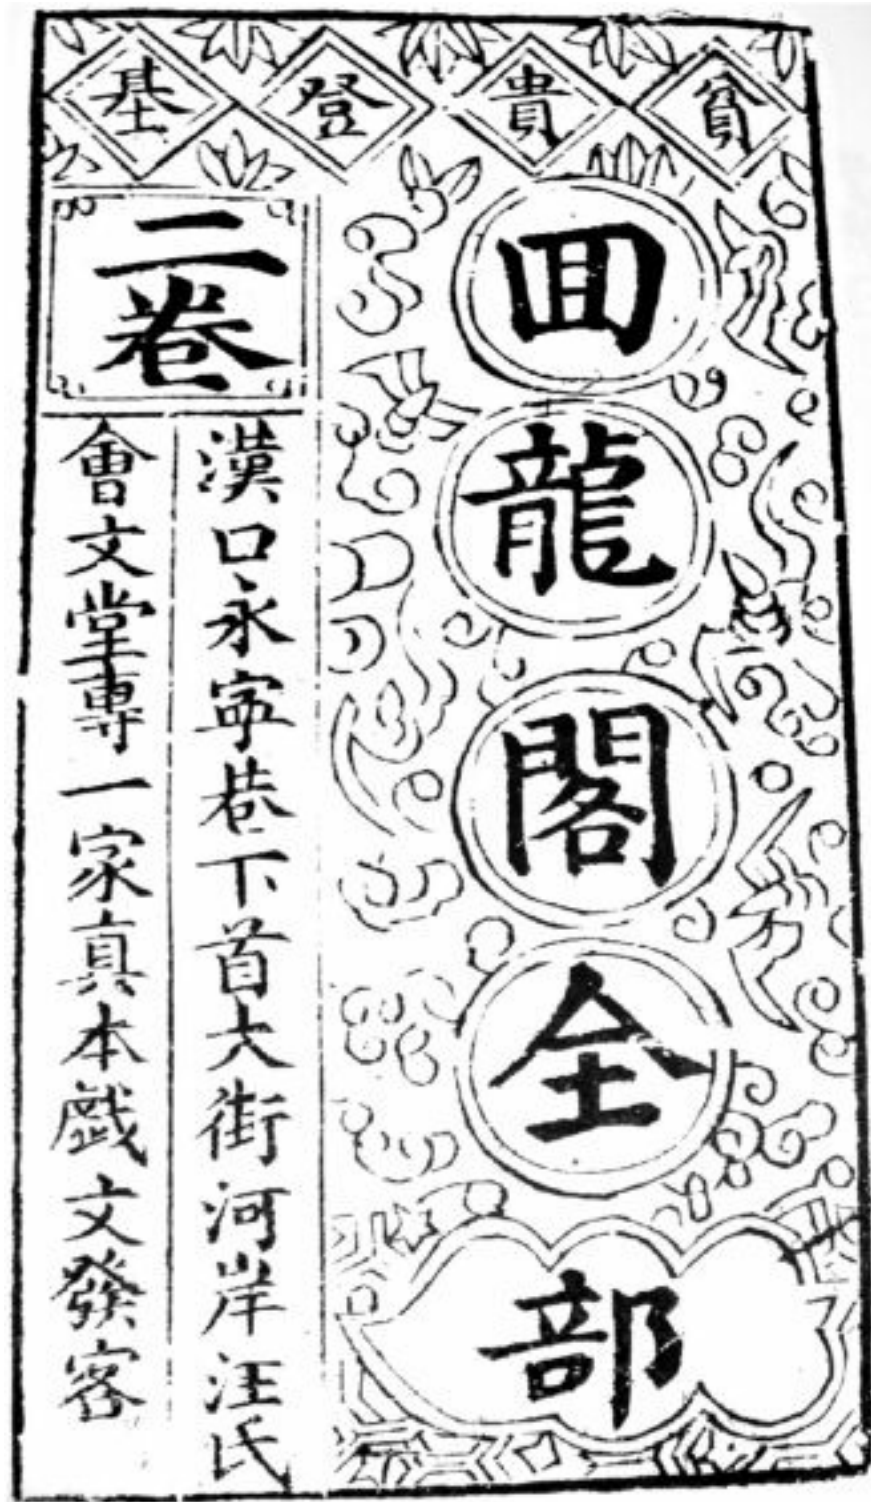 貧貴登基
回龍閣全部
二卷
漢口永寧巷下首大街河岸汪氏
會文堂專一家真本戯文發客